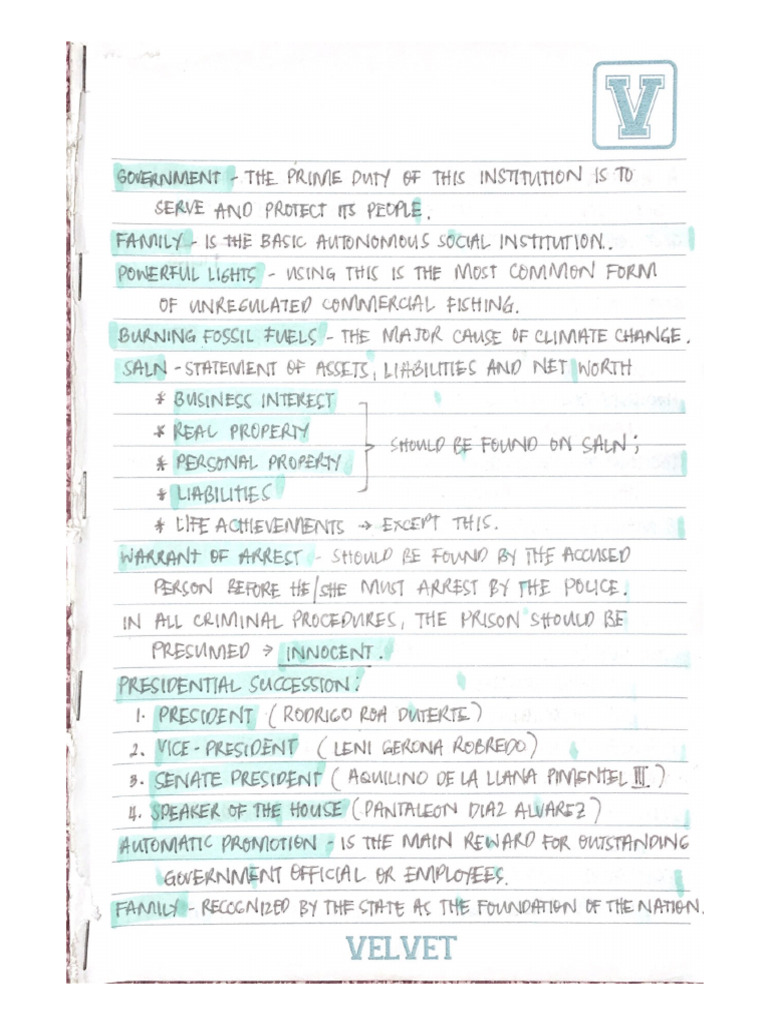 V
GOVERNMENT - THE PRIME DUTY OF THIS INSTITUTION IS TO
SERVE AND PROTECT ITS PEOPLE.
FAMILY - IS THE BASIC AUTONOMOUS SOCIAL INSTITUTION.
POWERFUL LIGHTS - USING THIS IS THE MOST COMMON FORM
OF UNREGULATED COMMERCIAL FISHING.
BURNING FOSSIL FUELS - THE MAJOR CAUSE OF CLIMATE CHANGE.
SALN - STATEMENT OF ASSETS, LIABILITIES AND NET WORTH
* BUSINESS INTEREST
* REAL PROPERTY
SHOULD BE FOUND ON SALN;
* PERSONAL PROPERTY
* LIABILITIES
* LIFE ACHIEVEMENTS → EXCEPT THIS.
WARRANT OF ARREST - SHOULD BE FOUND BY THE ACCUSED
PERSON BEFORE HE/SHE MUST ARREST BY THE POLICE.
IN ALL CRIMINAL PROCEDURES, THE PRISON SHOULD BE
PRESUMED → INNOCENT.
PRESIDENTIAL SUCCESSION:
1. PRESIDENT (RODRIGO ROA DUTERTE)
2. VICE-PRESIDENT (LENI GERONA ROBREDO)
3. SENATE PRESIDENT (AQUILINO DE LA LLANA PIMENTEL III)
4. SPEAKER OF THE HOUSE (PANTALEON DIAZ ALVAREZ)
AUTOMATIC PROMOTION - IS THE MAIN REWARD FOR OUTSTANDING
GOVERNMENT OFFICIAL OR EMPLOYEES.
FAMILY - RECOGNIZED BY THE STATE AS THE FOUNDATION OF THE NATION.
VELVET